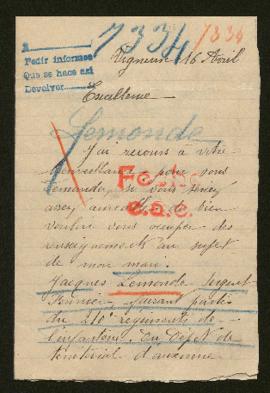 7334 1334
A
Pedir informes
Que se hace así
Devolver
Vigneux 16 Avril
Excellence
Lemonde
J'ai recours à votre
bienveillance pour vous
demander si vous seriez
assez de bien
vouloir vous occuper des
renseignements au sujet
de mon mari
Jacques Lemonde Sergent
Fourrier faisant partie
du 210e régiments de
l'infanterie. Du Dépôt de
territorial d'auxonne
Fecha
c.a.c.